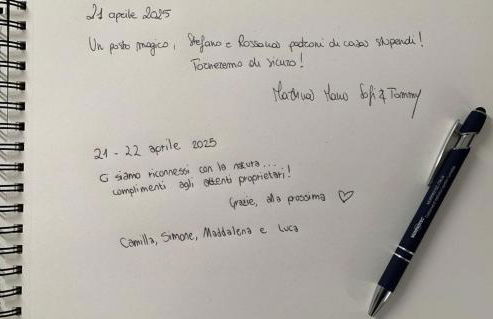 21 aprile 2025
Un posto magico, Stefano e Rossana padroni di casa stupendi!
Torneremo di sicuro!
Sofi & Tommy
21 - 22 aprile 2025
Ci siamo riconnessi con la natura....
complimenti agli attenti proprietari!
Grazie, alla prossima ♡
Camilla, Simone, Maddalena e Luca